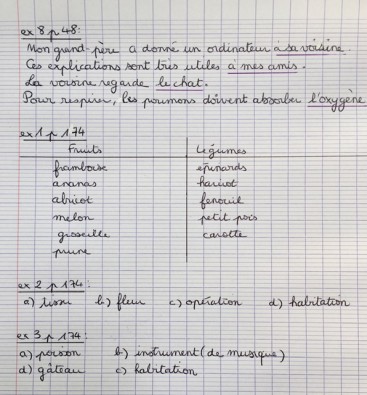 ex 8 p 48:
Mon grand-père a donné un ordinateur à sa voisine.
Ces explications sont très utiles à mes amis.
La voisine regarde le chat.
Pour respirer, les poumons doivent absorber l'oxygène
ex 1 p 174
Fruits Légumes
framboise épinards
ananas haricot
abricot fenouil
melon petit pois
groseille carotte
prune
ex 2 p 174:
a) tissu b) fleur c) opération d) habitation
ex 3 p 174:
a) poison b) instrument (de musique)
d) gâteau c) habitation